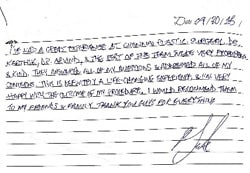 I'VE HAD A GREAT EXPERIENCE AT CINCINNAI PLASTIC SURGERY. DR.
KARTHIK, DR. ARVIND, & THE REST OF THE TEAM WERE VERY
& KIND. THEY ANSWERED ALL OF MY QUESTIONS & ADDRESSED ALL OF MY
CONCERNS. THIS IS DEFINITELY A LIFE-CHANGING EXPERIENCE & I'M VERY
HAPPY WITH THE OUTCOME OF MY PROCEDURE. I WOULD RECOMMEND THEM
TO MY FRIENDS & FAMILY. THANK YOU GUYS FOR EVERYTHING